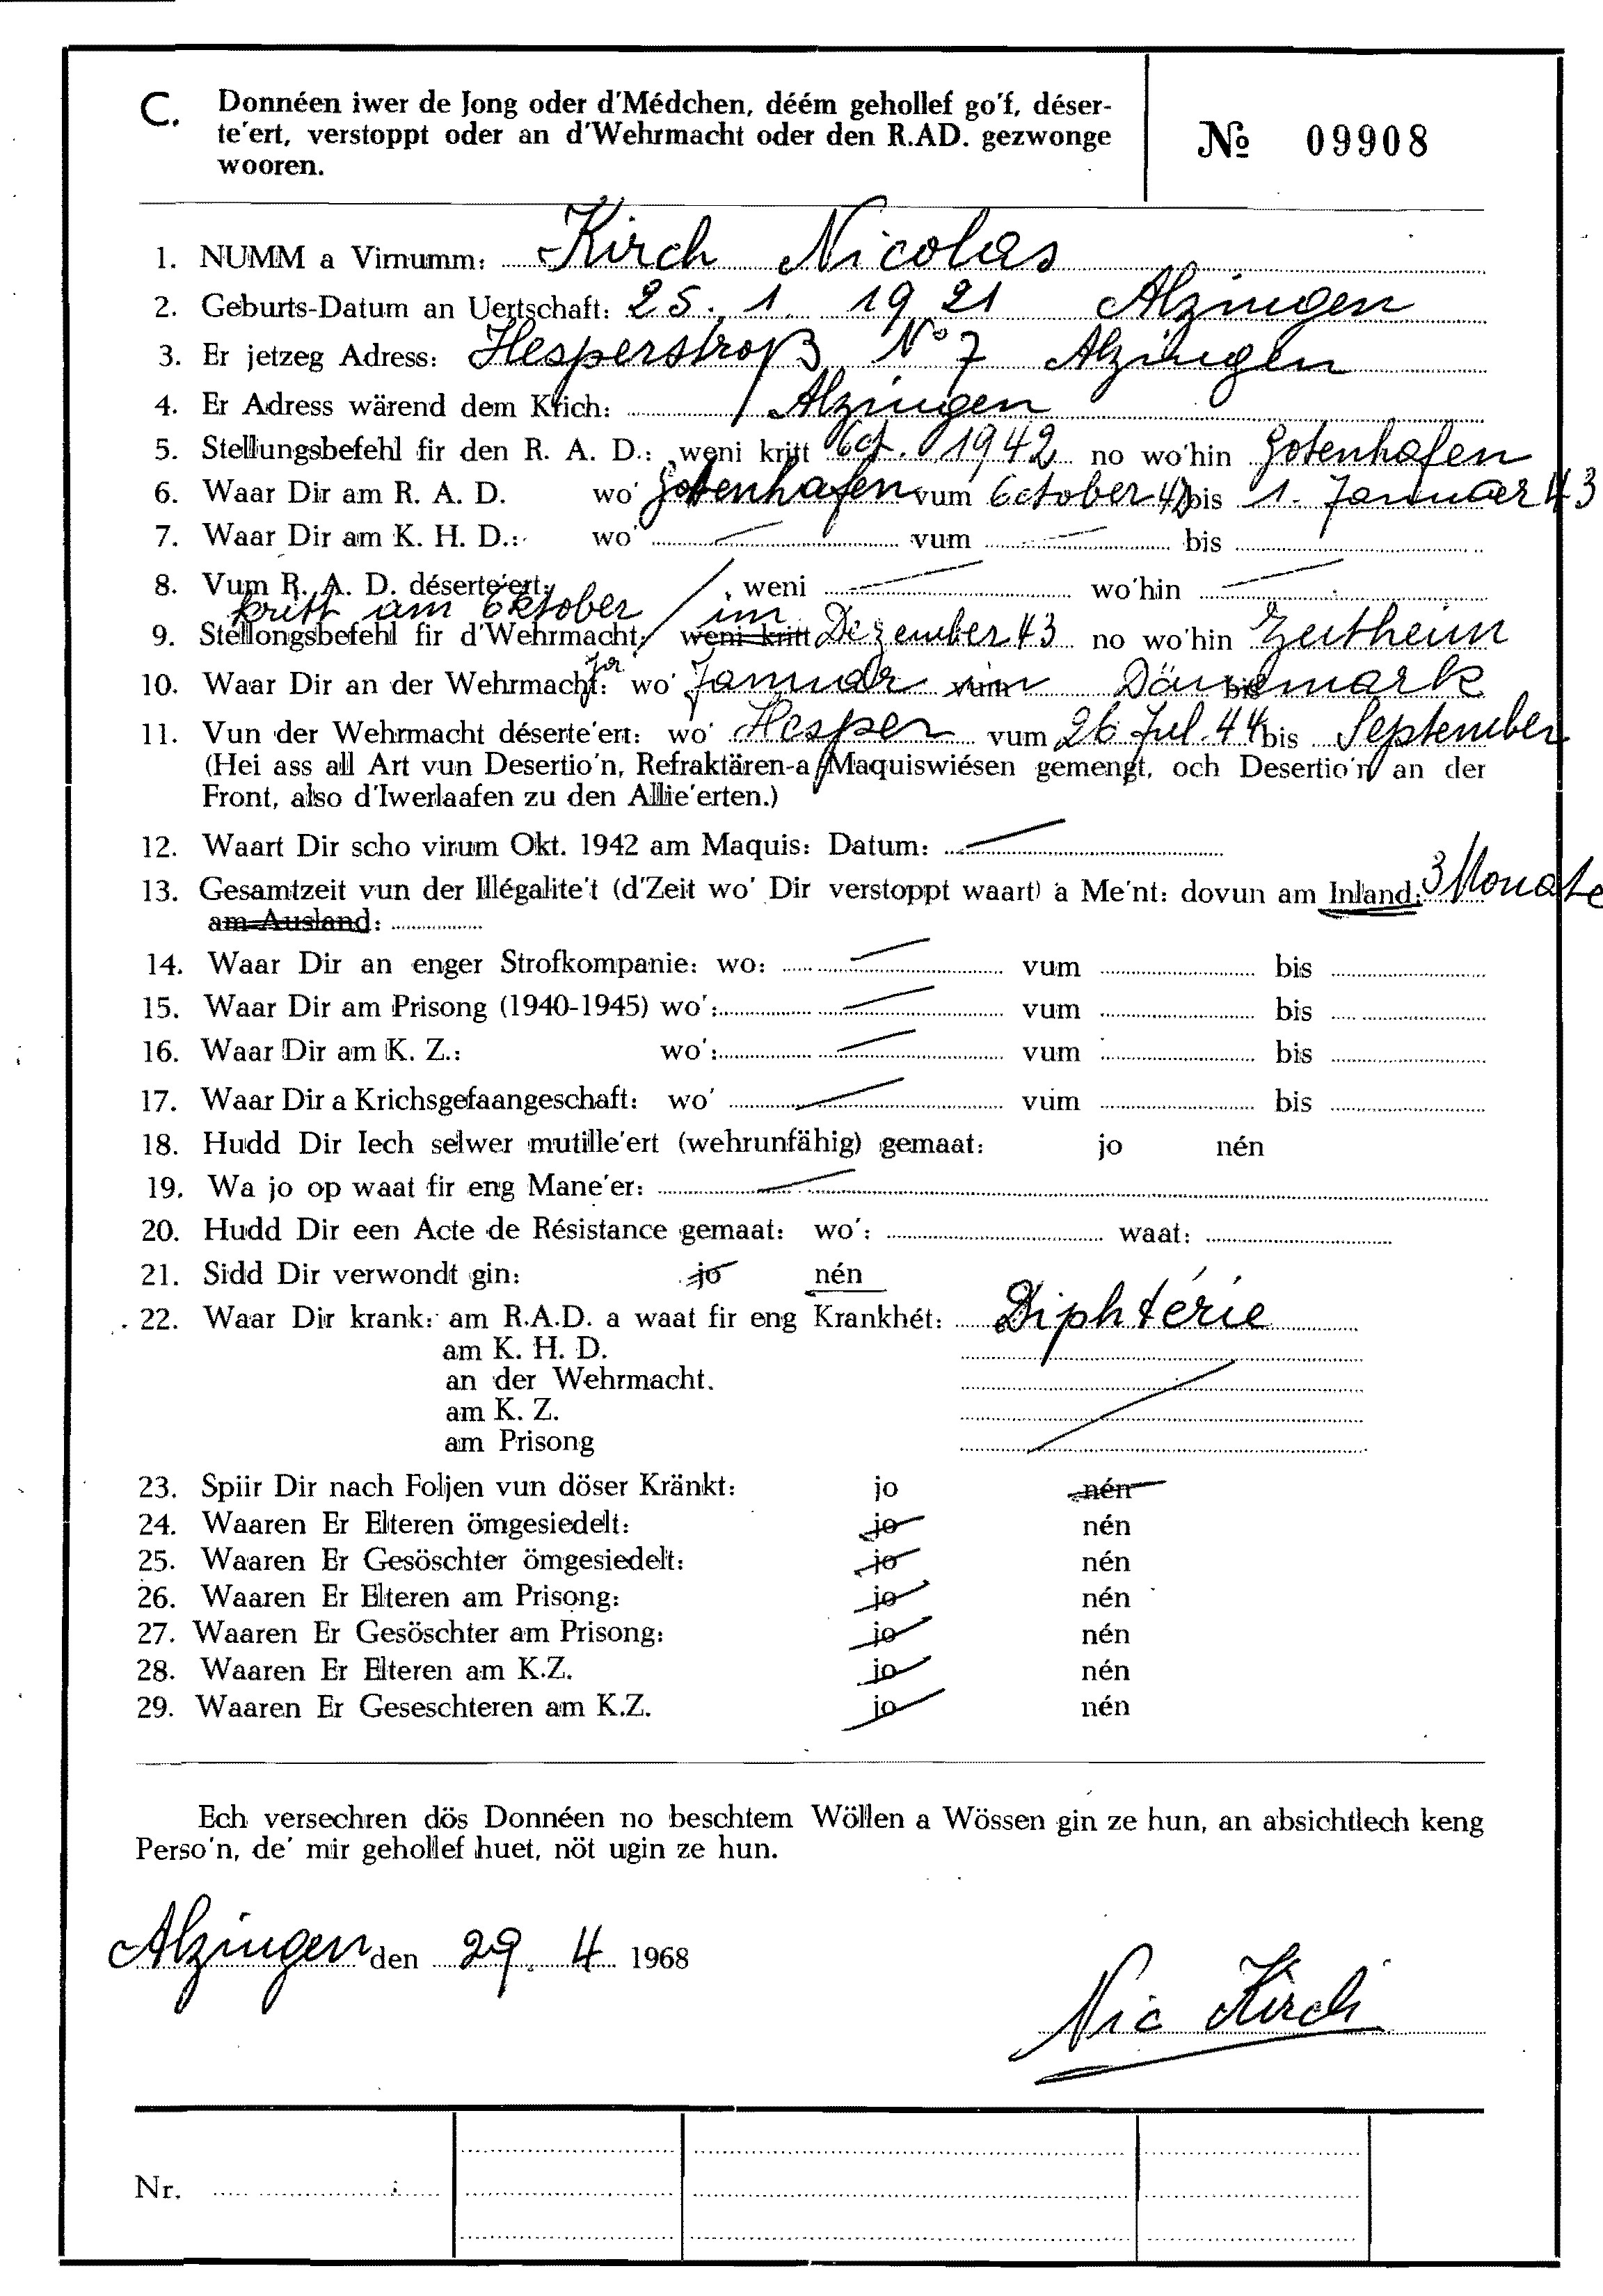 C. Donnéen iwer de Jong oder d'Médchen, déém gehollef go'f, déser-
te'ert, verstoppt oder an d'Wehrmacht oder den R.AD. gezwonge
wooren.
№ 09908
1. NUMM a Virnumm: Kirch Nicolas
2. Geburts-Datum an Uertschaft: 25. 1. 1921 Alzingen
3. Er jetzeg Adress: Hesperstroß N° 7 Alzingen
4. Er Adress wärend dem Krich: Alzingen
5. Stellungsbefehl fir den R. A. D.: weni kritt Oct. 1942 no wo'hin Gotenhafen
6. Waar Dir am R. A. D. wo' Gotenhafen vum October 42 bis 1. Januar 43
7. Waar Dir am K. H. D.: wo' vum bis
8. Vum R. A. D. déserte'ert: , weni wo'hin
kritt am Oktober / im
9. Stellongsbefehl fir d'Wehrmacht: weni kritt Dezember 43 no wo'hin Zeitheim
10. Waar Dir an der Wehrmacht: Ja wo' Januar vum in Dänemark bis
11. Vun der Wehrmacht déserte'ert: wo' Hesper vum 26 Jul. 44 bis September
(Hei ass all Art vun Desertio'n, Refraktären-a Maquiswiésen gemengt, och Desertio'n an der
Front, also d'Iwerlaafen zu den Allie'erten.)
12. Waart Dir scho virum Okt. 1942 am Maquis: Datum:
13. Gesamtzeit vun der Illégalite't (d'Zeit wo' Dir verstoppt waart) a Me'nt: dovun am Inland: 3 Monate
am Ausland:
14. Waar Dir an enger Strofkompanie: wo: vum bis
15. Waar Dir am Prisong (1940-1945) wo': vum bis
16. Waar Dir am K. Z.: wo': vum bis
17. Waar Dir a Krichsgefaangeschaft: wo' vum bis
18. Hudd Dir Iech selwer mutille'ert (wehrunfähig) gemaat: jo nén
19. Wa jo op waat fir eng Mane'er:
20. Hudd Dir een Acte de Résistance gemaat: wo': waat:
21. Sidd Dir verwondt gin: jo nén
22. Waar Dir krank: am R.A.D. a waat fir eng Krankhét: Diphtérie
am K. H. D.
an der Wehrmacht.
am K. Z.
am Prisong
23. Spiir Dir nach Foljen vun döser Kränkt: jo nén
24. Waaren Er Elteren ömgesiedelt: jo nén
25. Waaren Er Gesöschter ömgesiedelt: jo nén
26. Waaren Er Elteren am Prisong: jo nén
27. Waaren Er Gesöschter am Prisong: jo nén
28. Waaren Er Elteren am K.Z. jo nén
29. Waaren Er Geseschteren am K.Z. jo nén
Ech versechren dös Donnéen no beschtem Wöllen a Wössen gin ze hun, an absichtlech keng
Perso'n, de' mir gehollef huet, nöt ugin ze hun.
Alzingen den 29. 4 1968
Nic Kirch
Nr.